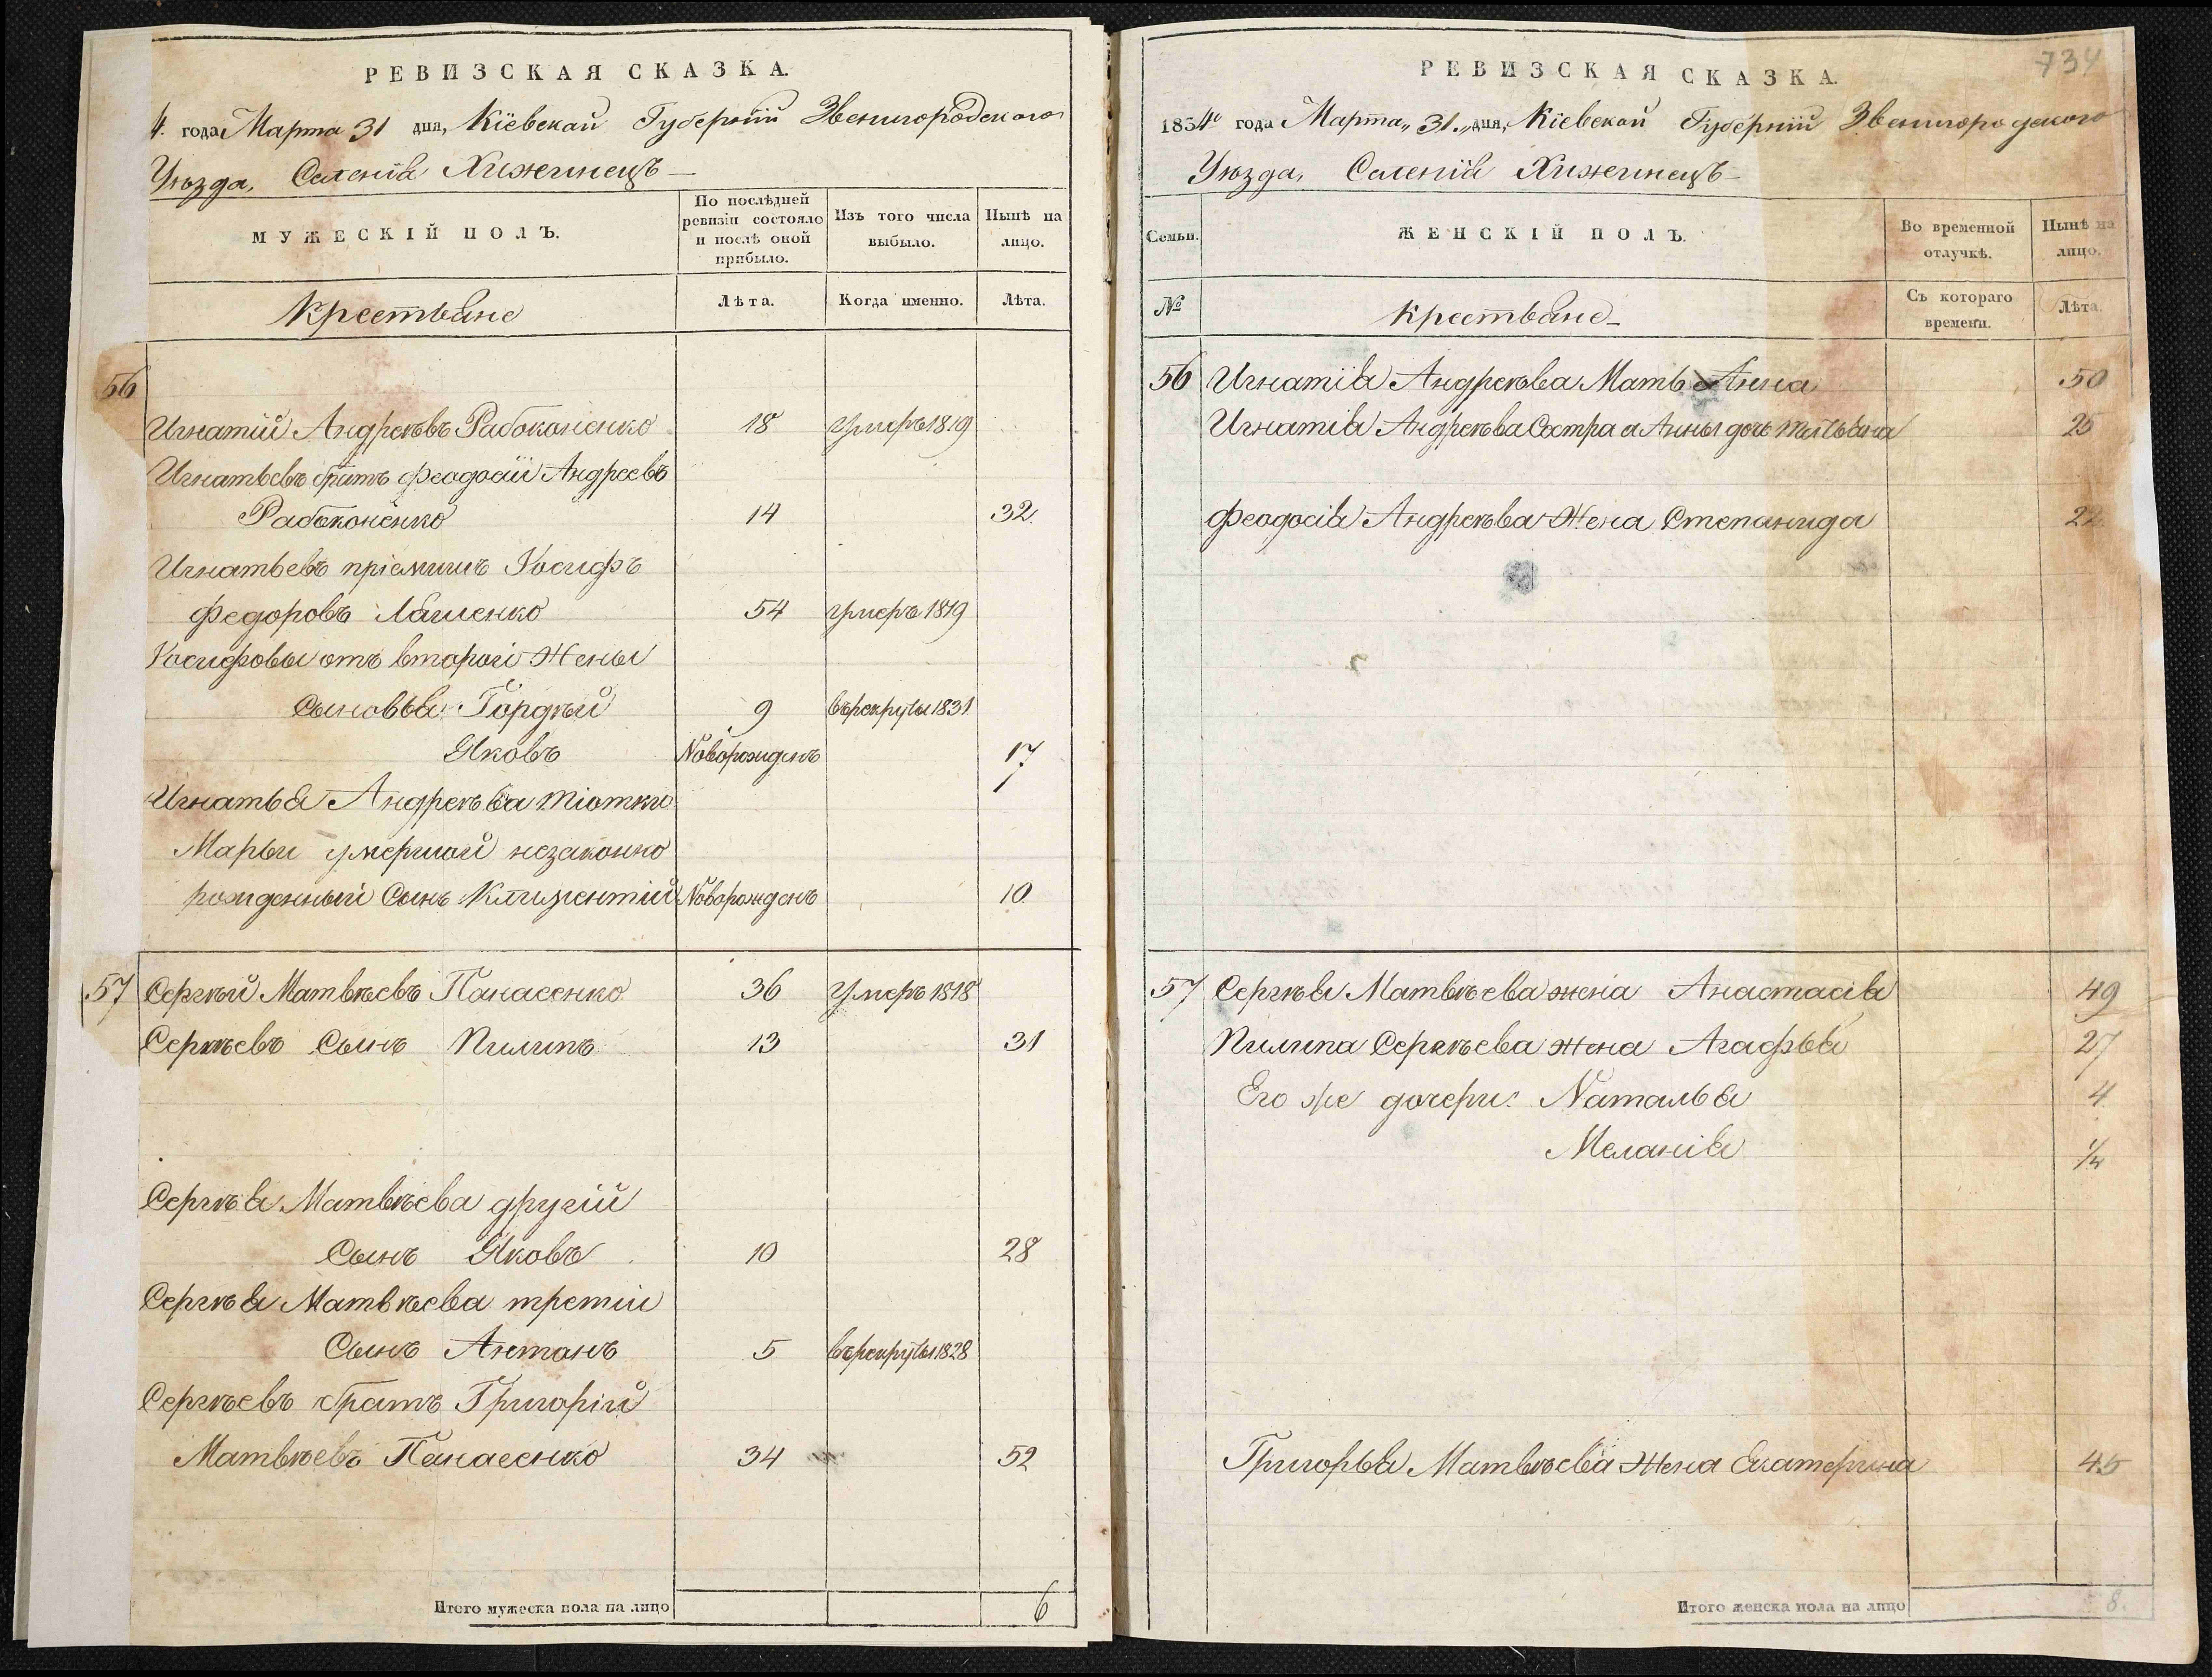 РЕВИЗСКАЯ СКАЗКА.
4. года Марта 31 дня, Кіевской Губерніи Звенигородского
Уѣзда, Селенія Хижинецъ
МУЖЕСКІЙ ПОЛЪ.
По послѣдней ревизіи состояло и послѣ оной прибыло.
Изъ того числа выбыло.
Нынѣ на лицо.
Крестьяне
Лѣта.
Когда именно.
Лѣта.
56
Игнатій Андреевъ Рабоконенко 18 умеръ 1819
Игнатьевъ братъ Феодосій Андреевъ
Рабоконенко 14 32.
Игнатьевъ пріемышъ Іосифъ
Федоровъ 54 умеръ 1819
Іосифовы отъ второй жены
Сыновья Гордѣй 9 въ рекруты 1831
Яковъ Новорожденъ 17
Игнатья Андреева тіотки
Марьи умершой незаконно
рожденный Сынъ Климентій Новорожденъ 10
57 Сергѣй Матвѣевъ Панасенко 36 Умеръ 1818
Сергѣевъ Сынъ Пилипъ 13 31
Сергѣя Матвѣева другій
Сынъ Яковъ 10 28
Сергѣя Матвѣева третій
Сынъ Антонъ 5 въ рекруты 1828
Сергѣевъ братъ Григорій
Матвѣевъ Панасенко 34 52
Итого мужеска пола на лицо 6
734
РЕВИЗСКАЯ СКАЗКА.
1834 года Марта „31„ дня, Кіевской Губерніи Звенигородского
Уѣзда, Селенія Хижинецъ
Семьи.
ЖЕНСКІЙ ПОЛЪ.
Во временной отлучкѣ.
Нынѣ на лицо.
№
Крестьяне
Съ котораго времени.
Лѣта.
56 Игнатія Андреева Мать Анна 50
Игнатія Андреева Сестра а Анны дочь 25
Феодосія Андреева Жена Степанида 22.
57 Сергѣя Матвѣева жена Анастасія 49
Пилипа Сергѣева жена Агафья 27
Его же дочери: Наталья 4
Меланія 1/4
Григорья Матвѣева Жена Екатерина 45
Итого женска пола на лицо 8.